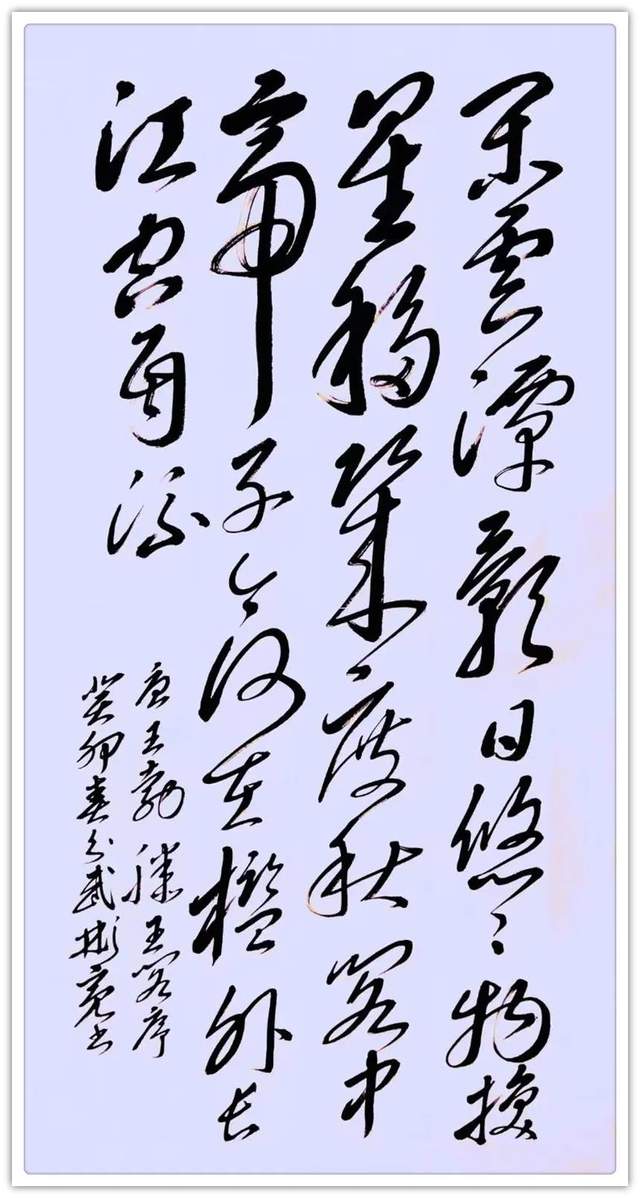 闲云潭影日悠々物换
星移几度秋阁中
帝子今何在槛外长
江空自流
唐王勃滕王阁序
癸卯春分武彬亮书